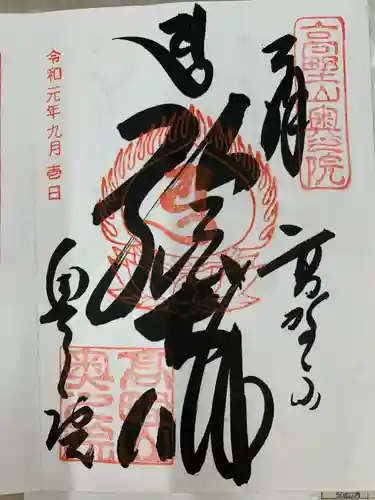 高野山奥之院
奉拝
高野山
弘法大師
奥之院
高野山
奥之院
令和元年九月壱日